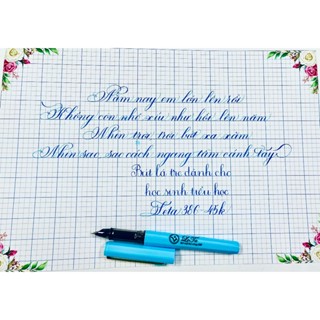 Năm nay em lớn lên rồi
Không còn nhỏ xíu như hồi lên năm
Nhìn trời, trời bớt xa xăm
Nhìn sao, sao cách ngang tầm cánh tay
Bút lá tre dành cho
học sinh tiểu học
Teta 380 45k